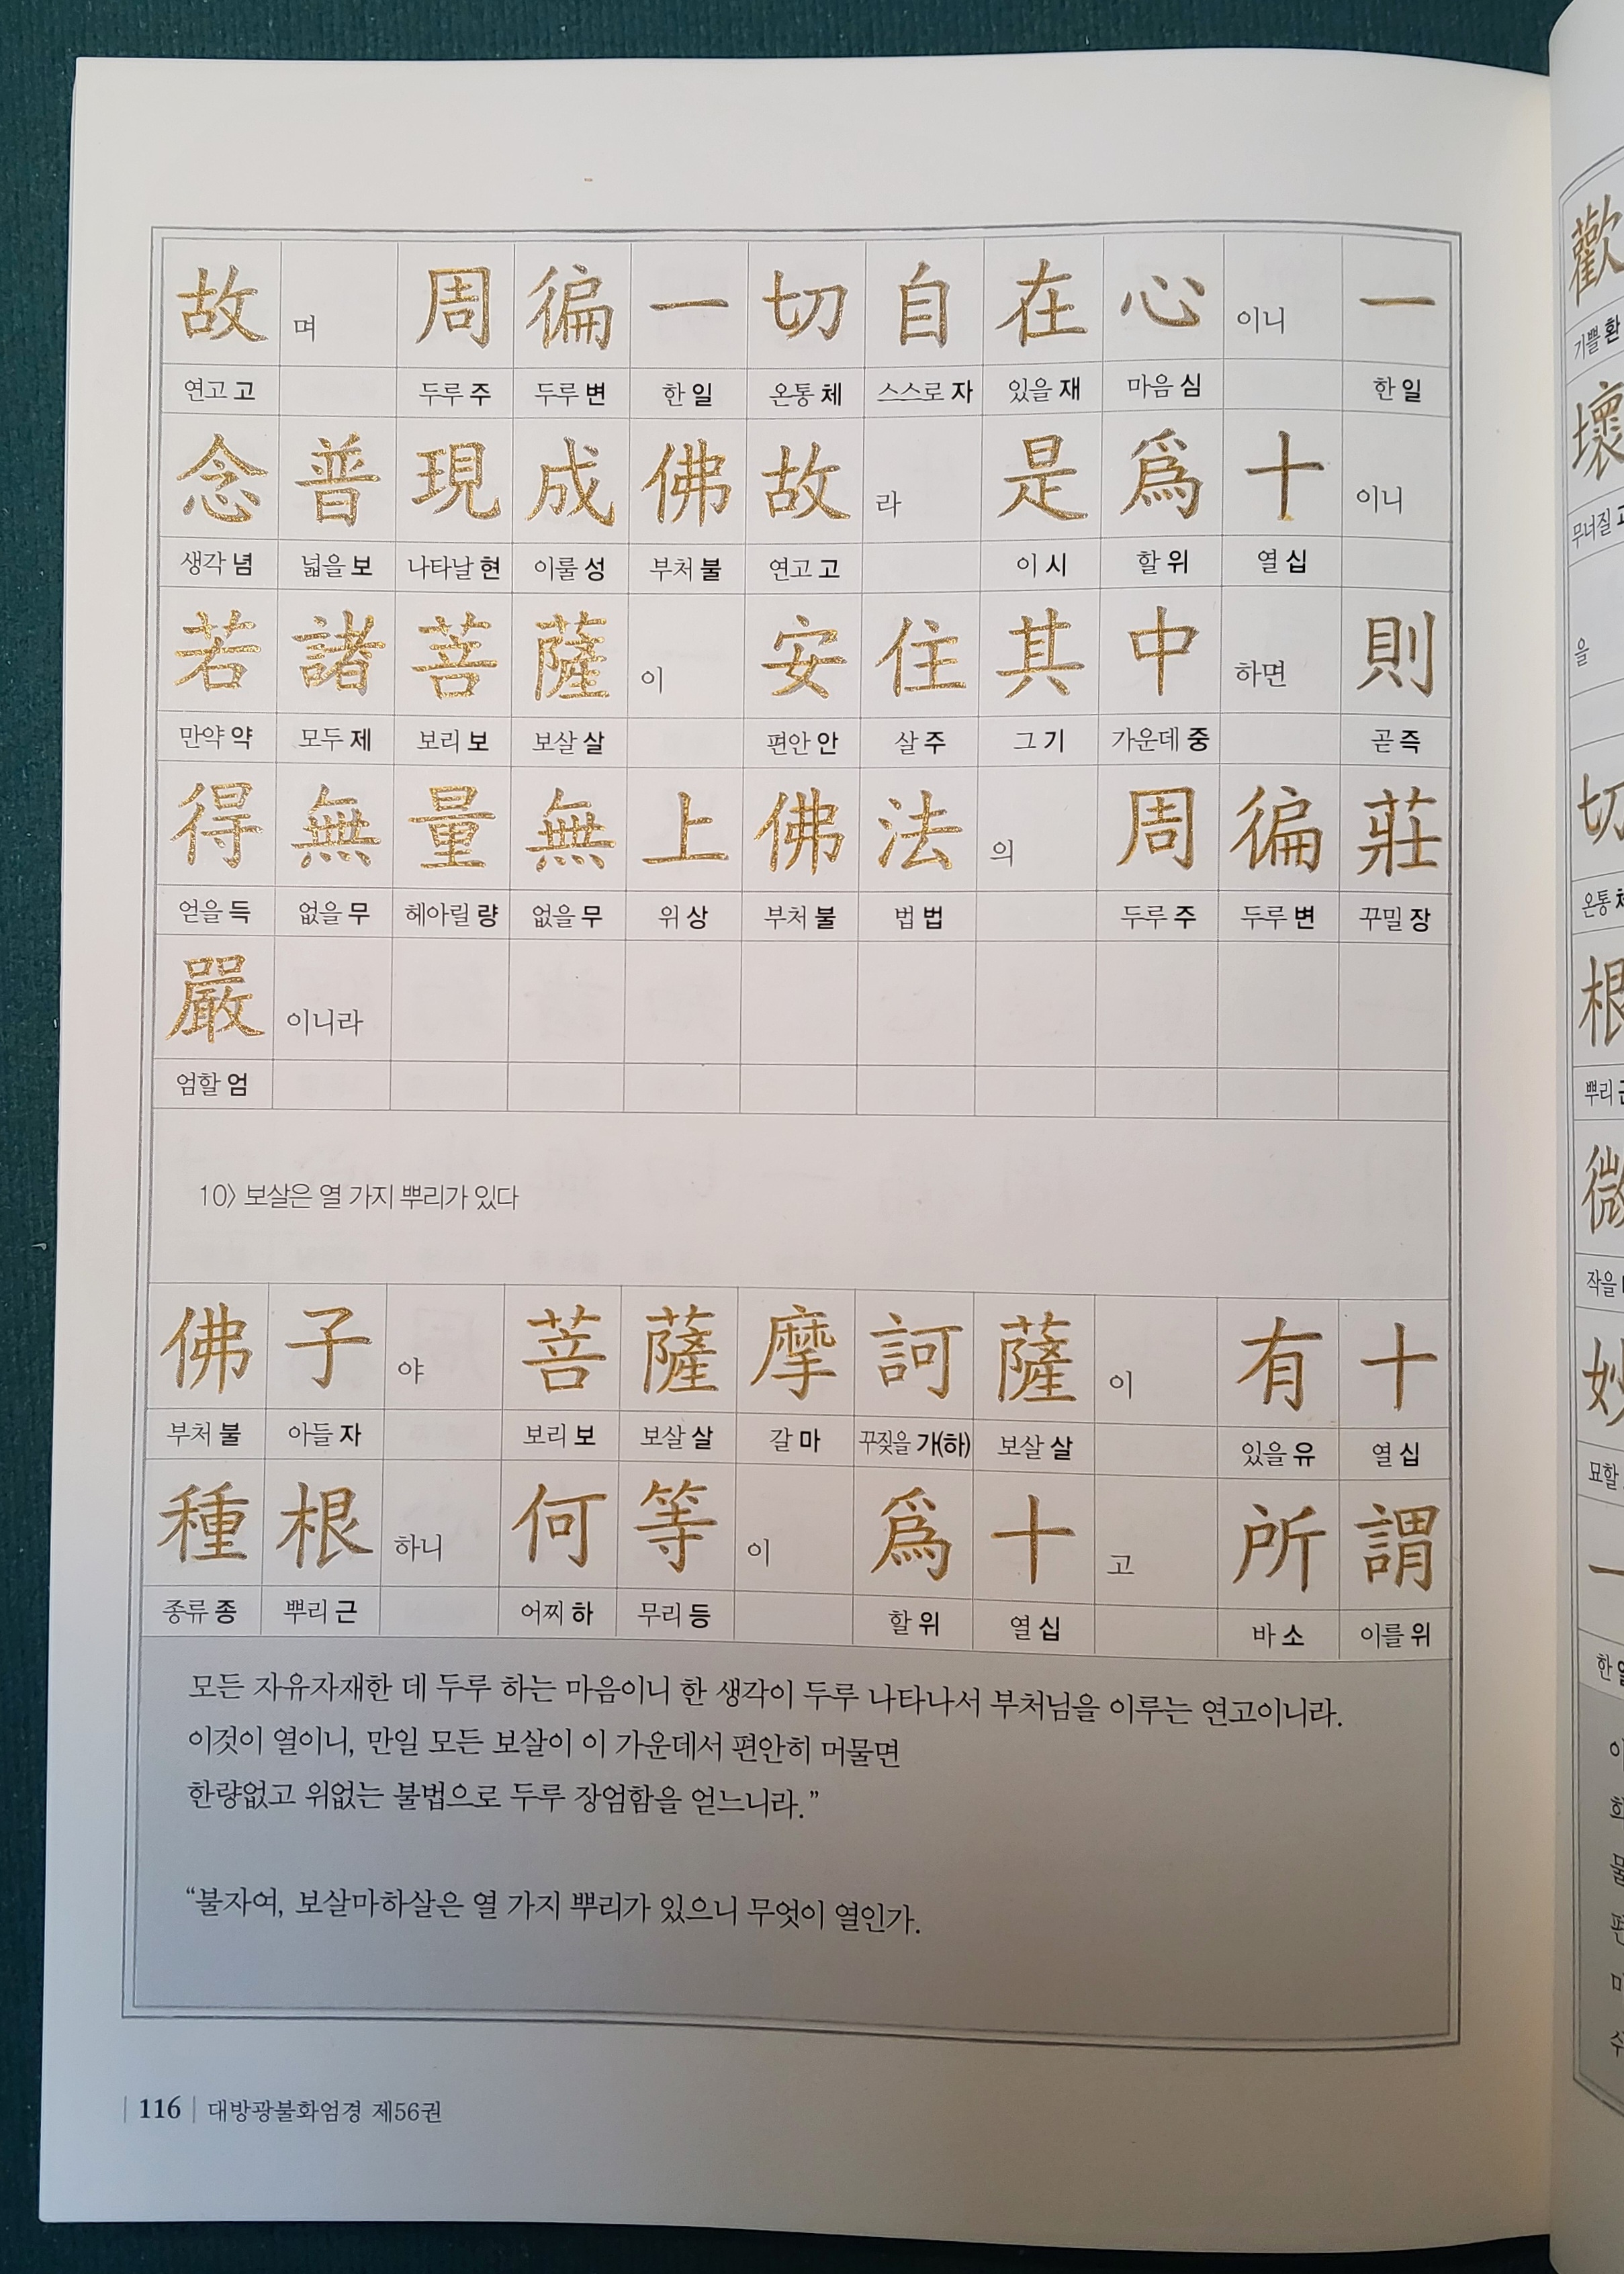 故 며 周 徧 一 切 自 在 心 이니 一
연고 고 두루 주 두루 변 한 일 온통 체 스스로 자 있을 재 마음 심 한 일
念 普 現 成 佛 故 라 是 爲 十 이니
생각 념 넓을 보 나타날 현 이룰 성 부처 불 연고 고 이 시 할 위 열 십
若 諸 菩 薩 이 安 住 其 中 하면 則
만약 약 모두 제 보리 보 보살 살 편안 안 살 주 그 기 가운데 중 곧 즉
得 無 量 無 上 佛 法 의 周 徧 莊
얻을 득 없을 무 헤아릴 량 없을 무 위 상 부처 불 법 법 두루 주 두루 변 꾸밀 장
嚴 이니라
엄할 엄
10) 보살은 열 가지 뿌리가 있다
佛 子 야 菩 薩 摩 訶 薩 이 有 十
부처 불 아들 자 보리 보 보살 살 갈 마 꾸짖을 가(하) 보살 살 있을 유 열 십
種 根 하니 何 等 이 爲 十 고 所 謂
종류 종 뿌리 근 어찌 하 무리 등 할 위 열 십 바 소 이를 위
모든 자유자재한 데 두루 하는 마음이니 한 생각이 두루 나타나서 부처님을 이루는 연고이니라.
이것이 열이니, 만일 모든 보살이 이 가운데서 편안히 머물면
한량없고 위없는 불법으로 두루 장엄함을 얻느니라.”
“불자여, 보살마하살은 열 가지 뿌리가 있으니 무엇이 열인가.
116 대방광불화엄경 제56권
歡
기쁠 환
壞
무너질
을
切
온통
根
뿌리
微
작을
妙
묘할
一
한